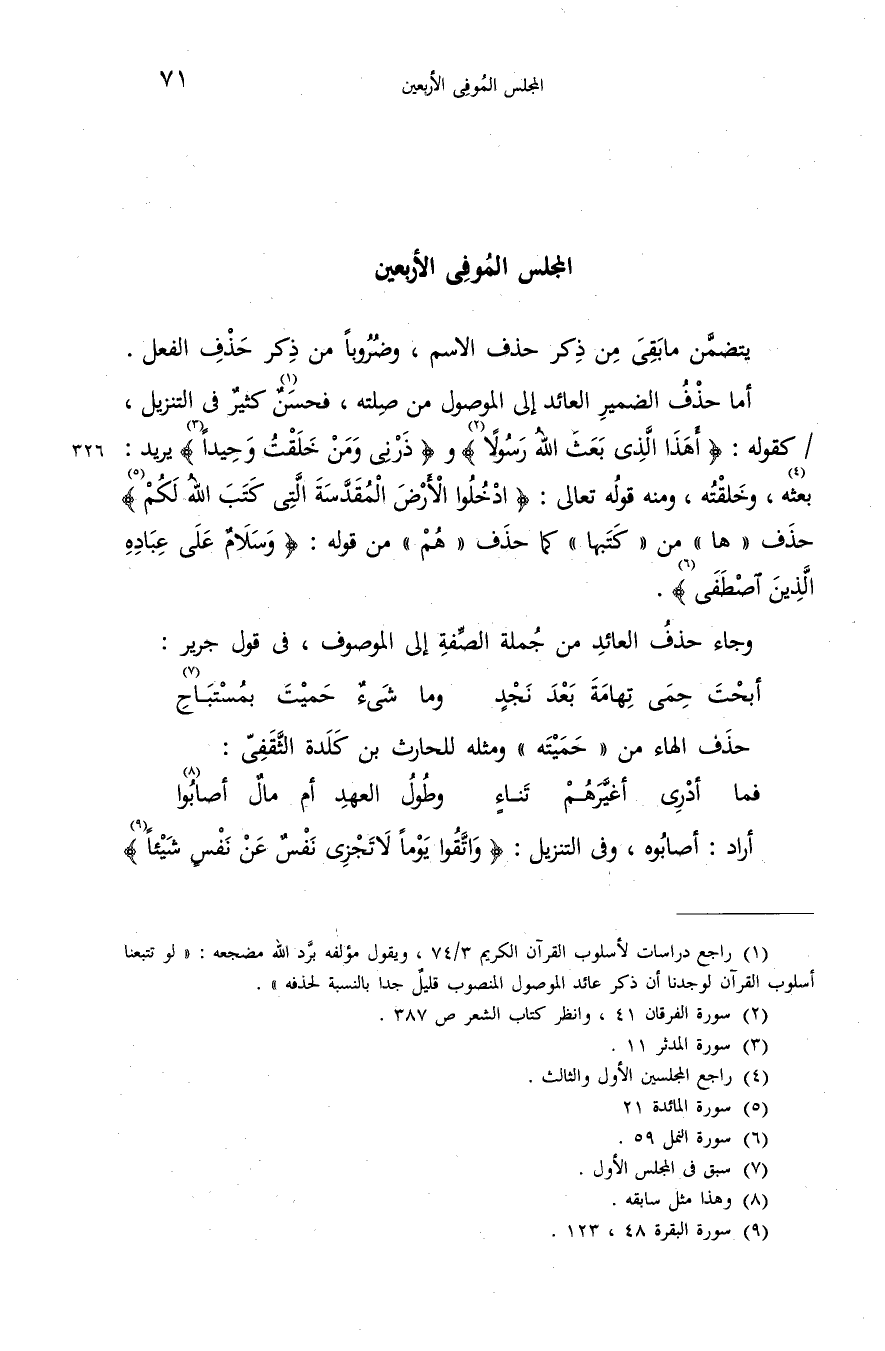 المجلس المُوفِى الأربعين ٧١
المجلس المُوفِى الأربعين
يتضمَّن مابَقِىَ مِن ذِكر حذف الاسم ، وضُرُوباً من ذِكر حَذْفِ الفعل .
أما حذْفُ الضميرِ العائد إلى الموصول من صِلته ، فحسَنٌ كثيرٌ فى التنزيل (١) ،
/ كقوله : ﴿ أَهَذَا الَّذِى بَعَثَ اللهُ رَسُولًا ﴾ (٢) و ﴿ ذَرْنِى وَمَنْ خَلَقْتُ وَحِيداً ﴾ (٣) يريد : ٣٢٦
بعثه (٤) ، وخَلقْتُه ، ومنه قولُه تعالى : ﴿ ادْخُلُوا الْأَرْضَ الْمُقَدَّسَةَ الَّتِى كَتَبَ اللهُ لَكُمْ ﴾ (٥)
حذَف « ها » من « كَتَبها » كما حذَف « هُمْ » من قوله : ﴿ وَسَلَامٌ عَلَى عِبَادِهِ
الَّذِينَ ٱصْطَفَى ﴾ (٦) .
وجاء حذفُ العائدِ من جُملة الصِّفةِ إلى الموصوف ، فى قول جرير :
أبحْتَ حِمَى تِهامَةَ بَعْدَ نَجْدٍ وما شَىءٌ حَميْتَ بمُسْتَبَـاحِ (٧)
حذَف الهاء من « حَمَيْتَه » ومثله للحارث بن كَلَدة الثَّقَفِىّ :
فما أدْرِى أغيَّرَهُـمْ تَنـاءٍ وطُولُ العهدِ أم مالٌ أصابُوا (٨)
أراد : أصابُوه ، وفى التنزيل : ﴿ وَاتَّقُوا يَوْماً لَاتَجْزِى نَفْسٌ عَنْ نَفْسٍ شَيْئاً ﴾ (٩)
(١) راجع دراسات لأسلوب القرآن الكريم ٧٤/٣ ، ويقول مؤلفه برَّد الله مضجعه : « لو تتبعنا
أسلوب القرآن لوجدنا أن ذكر عائد الموصول المنصوب قليلٌ جدا بالنسبة لحذفه » .
(٢) سورة الفرقان ٤١ ، وانظر كتاب الشعر ص ٣٨٧ .
(٣) سورة المدثر ١١ .
(٤) راجع المجلسين الأول والثالث .
(٥) سورة المائدة ٢١
(٦) سورة النمل ٥٩ .
(٧) سبق فى المجلس الأول .
(٨) وهذا مثل سابقه .
(٩) سورة البقرة ٤٨ ، ١٢٣ .